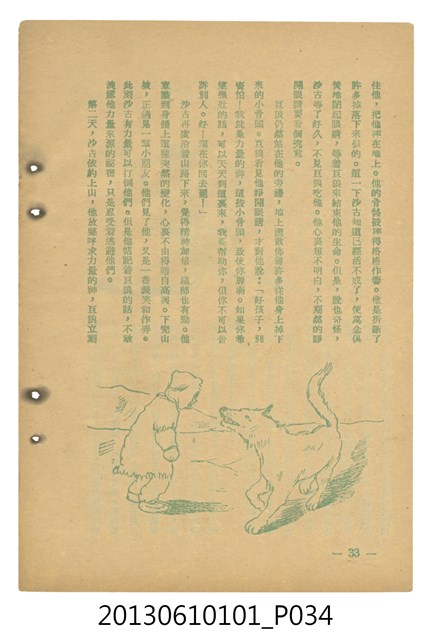 住他,把他摔在地上。他的骨骼被摔得格格作響。他是折斷了
許多掉落下來似的。這一下沙古知道已經活不成了,便萬念俱
灰地閉起眼睛,等着巨狼來結束他的生命。但是,說也奇怪,
沙古等了好久,不見巨狼吃他。他心裏想不明白,不期然的睜
開眼睛要看個究竟。
巨狼仍然站在他的旁邊,地上還散佈着許多從他身上掉下
來的小骨頭。巨狼看見他睜開眼睛,才對他說:「好孩子,別
害怕!我就是力量的神,這些小骨頭,最使你脆弱。如果你希
望強壯的話,可以天天到這裏來,我要幫助你,但你不可以告
訴別人。好!現在你回去罷!」
沙古再度沿着山路下來,覺得精神加倍,也有點。他
意識到身體上這種突然的變化,心裏不由得暗自高興。下完山
坡,正遇見一羣小朋友。他們見了他,又是一番譏笑和作弄。
此刻沙古有力量可以打倒他們。但是他惦記着巨狼的話,不敢
洩露他力量來源的祕密,只是忍受着逃避他們。
第二天,沙古依約上山,他放聲呼求力量的神,巨狼立刻
— 33 —
20130610101_P034